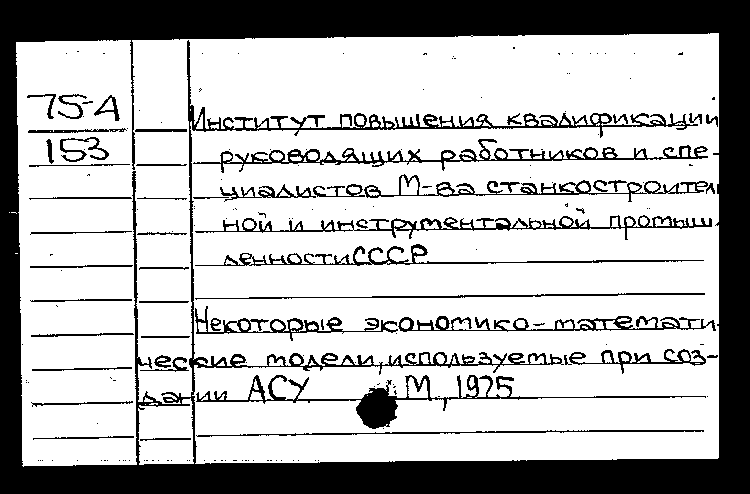 75-А
153
Институт повышения квалификации
руководящих работников и спе-
циалистов М-ва станкостроител
ной и инструментальной промыш
ленности СССР
Некоторые экономико-математи-
ческие модели, используемые при соз-
дании АСУ М, 1975